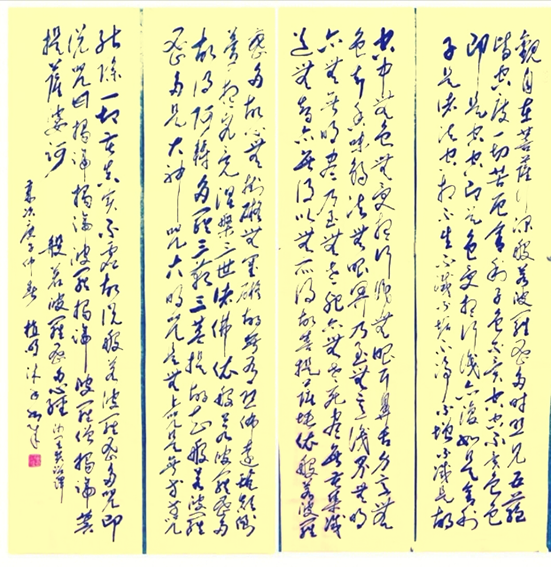 觀自在菩薩行深般若波羅蜜多時照見五蘊
皆空度一切苦厄舍利子色不異空空不異色色
即是空空即是色受想行識亦復如是舍利
子是諸法空相不生不滅不垢不淨不增不減是故
空中無色無受想行識無眼耳鼻舌身意無
色聲香味觸法無眼界乃至無意識界無無明
亦無無明盡乃至無老死亦無老死盡無苦集滅
道無智亦無得以無所得故菩提薩埵依般若波羅
蜜多故心無罣礙無罣礙故無有恐怖遠離顛倒
夢想究竟涅槃三世諸佛依般若波羅蜜多
故得阿耨多羅三藐三菩提故知般若波羅
蜜多是大神咒是大明咒是無上咒是無等等咒
能除一切苦真實不虛故說般若波羅蜜多咒即
說咒曰揭諦揭諦波羅揭諦波羅僧揭諦菩
提薩婆訶
般若波羅蜜多心經
歲次庚子仲春